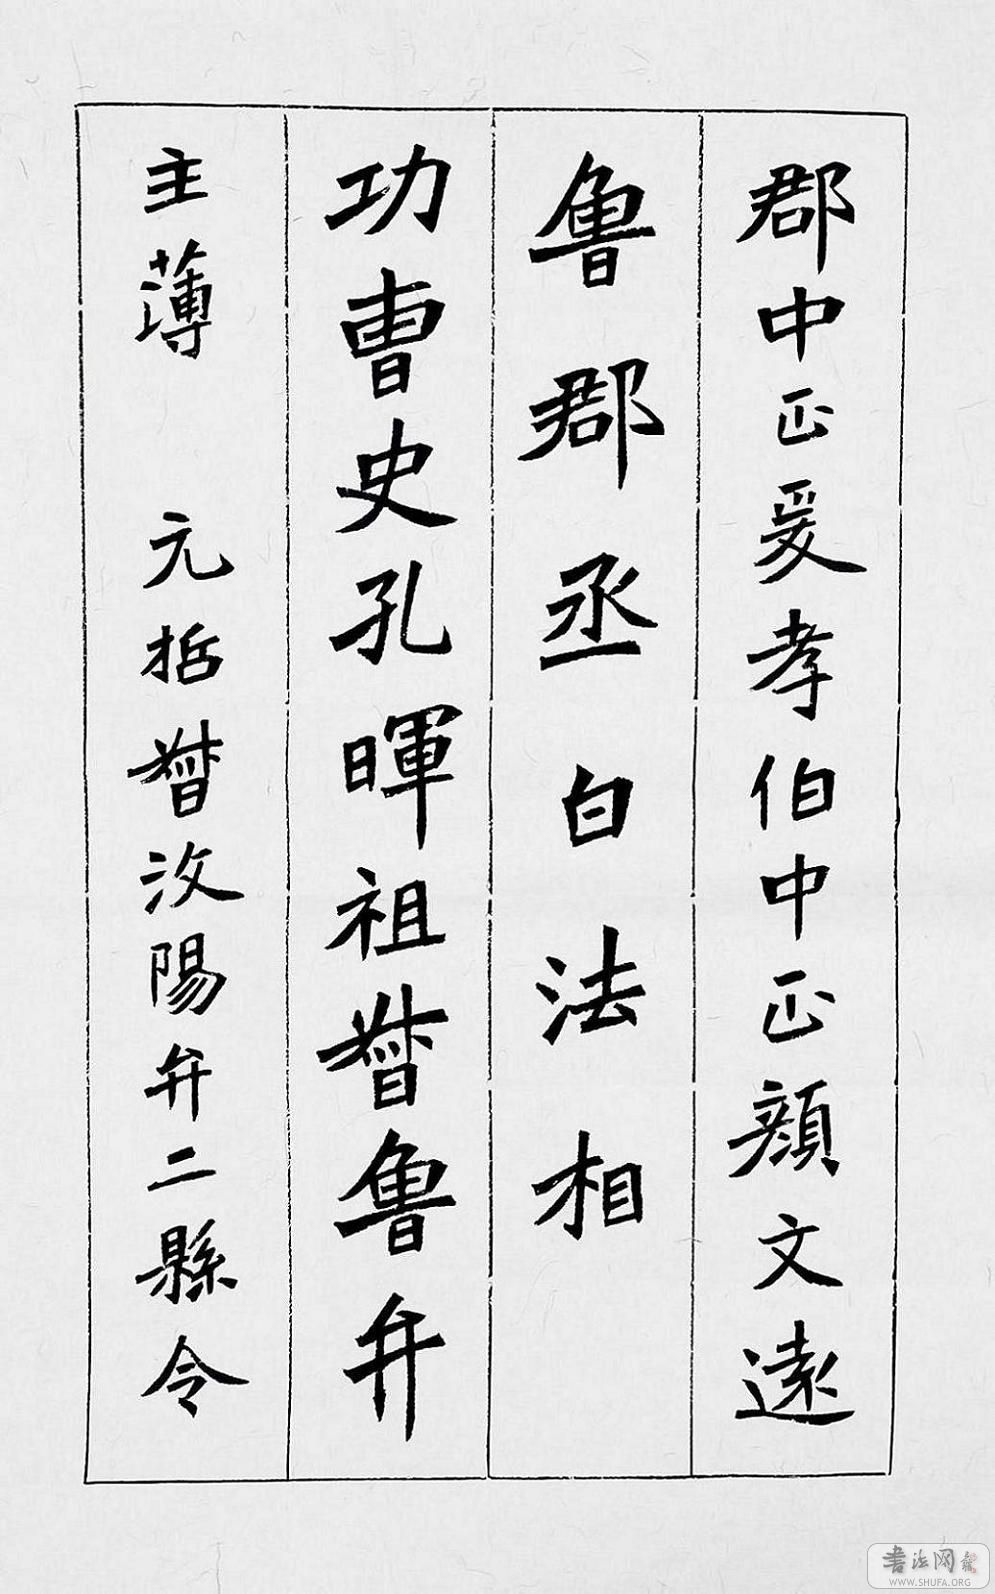 郡中正爰孝伯中正顏文遠
魯郡丞白法相
功曹史孔暉祖督魯弁
主薄 元括督汶陽弁二縣令
書法网
WWW.SHUFA.ORG